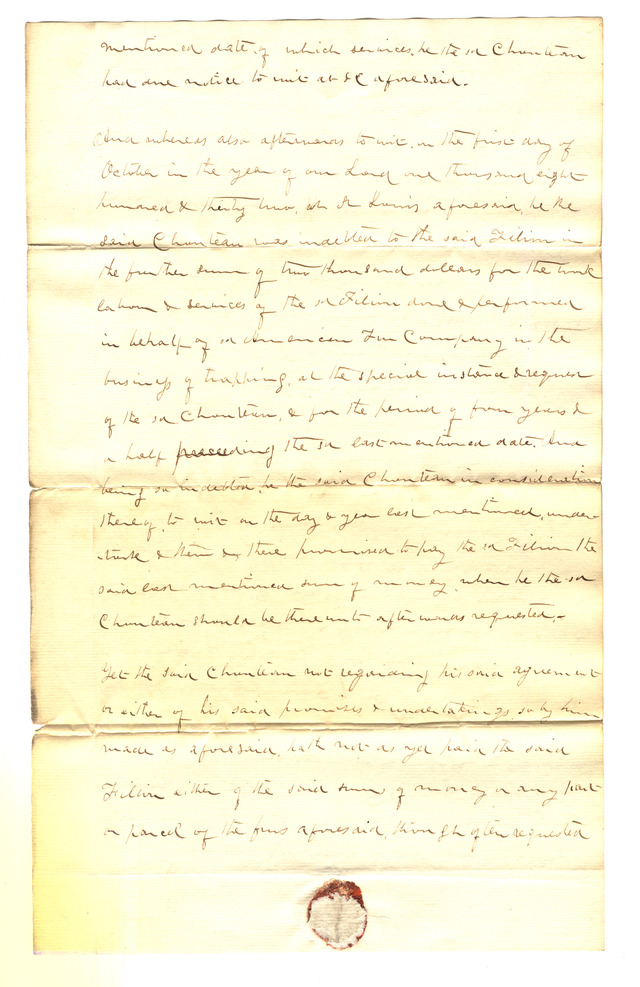 mentioned date, of which services, he the sd Chouteau
had due notice to wit at &C aforesaid.
And whereas also afterwards to wit, on the first day of
October in the year of our Lord one thousand eight
hundred & thirty two, at St Louis, aforesaid, he the
said Chouteau was indebted to the said Filion in
the further sum of two thousand dollars for the work
labour & services of the sd Filion done & performed
in behalf of sd American Fur Company in the
business of trapping, at the special instance & request
of the sd Chouteau, & for the period of four years &
a half preceeding the sd last mentioned date. And
being so indebted, he the said Chouteau in consideration
thereof, to wit on the day & year last mentioned, under-
took & then & there promised to pay the sd Filion the
said last mentioned sum of money, when he the sd
Chouteau should be thereunto afterwards requested.-
Yet the said Chouteau not regarding his said agreement
or either of his said promises & undertakings, so by him
made as aforesaid, hath not as yet paid the said
Filion either of the said sums of money or any part
or parcel of the furs aforesaid, though often requested